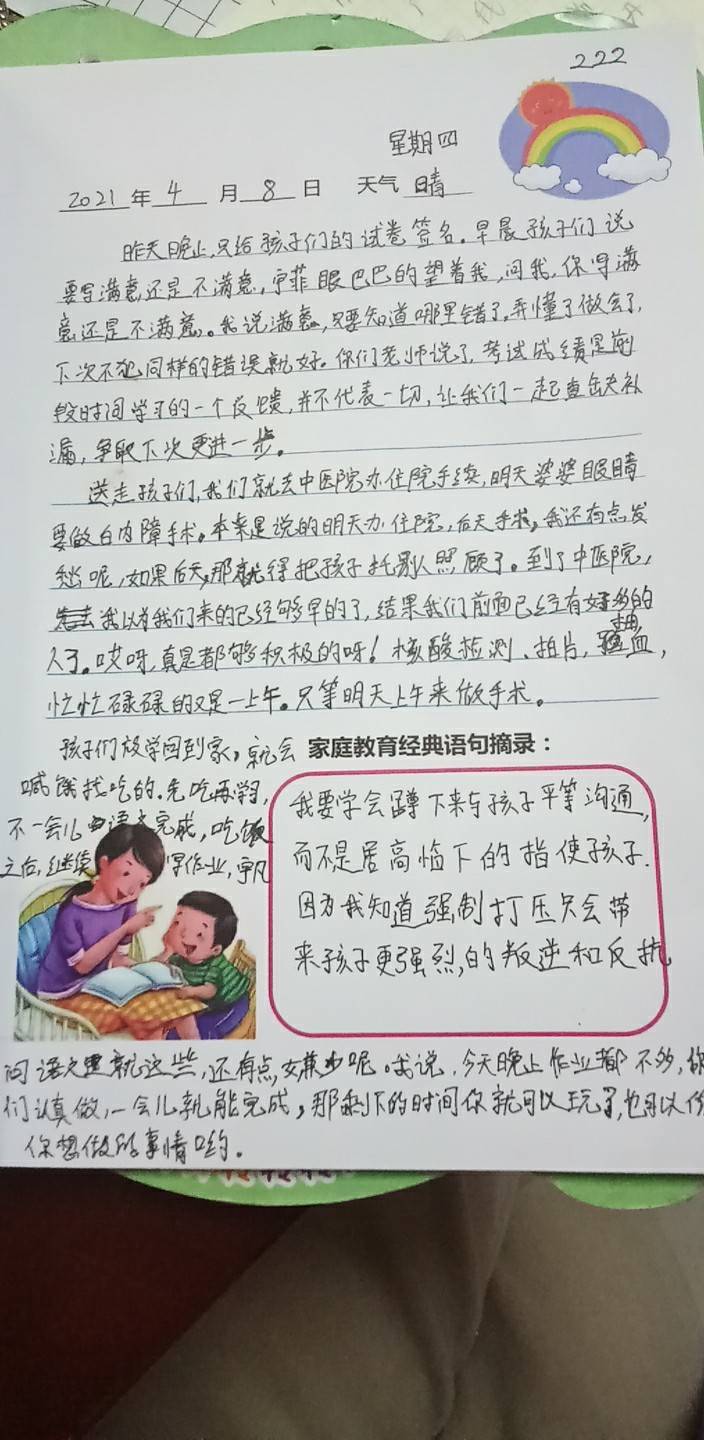 222
星期四
2021年4月8日 天气 晴
昨天晚上,只给孩子们的试卷签名。早晨孩子们说
要写满意还是不满意,宇菲眼巴巴的望着我,问我,你写满
意还是不满意。我说满意,只要知道哪里错了,弄懂了做会了,
下次不犯同样的错误就好。你们老师说了,考试成绩是前
段时间学习的一个反馈,并不代表一切,让我们一起查缺补
漏,争取下次更进一步。
送走孩子们,我们就去中医院办住院手续,明天婆婆眼睛
要做白内障手术。本来是说的明天办住院,后天手术,我还有点发
愁呢,如果后天,那就得把孩子托别人照顾了。到了中医院,
我以为我们来的已经够早的了,结果我们前面已经有好多的
人了。哎呀,真是都够积极的呀!核酸检测、拍片、抽血,
忙忙碌碌的又是一上午。只等明天上午来做手术。
孩子们放学回到家,就会
喊饿找吃的。先吃再写,
不一会儿语文完成,吃饭
之后,继续写作业,宇凡
家庭教育经典语句摘录:
我要学会蹲下来与孩子平等沟通,
而不是居高临下的指使孩子.
因为我知道强制打压只会带
来孩子更强烈的叛逆和反抗
问语文里就这些,还有点嫌少呢。我说,今天晚上作业都不多,你
们认真做,一会儿就能完成,那剩下的时间你就可以玩了,也可以做
你想做的事情哟。